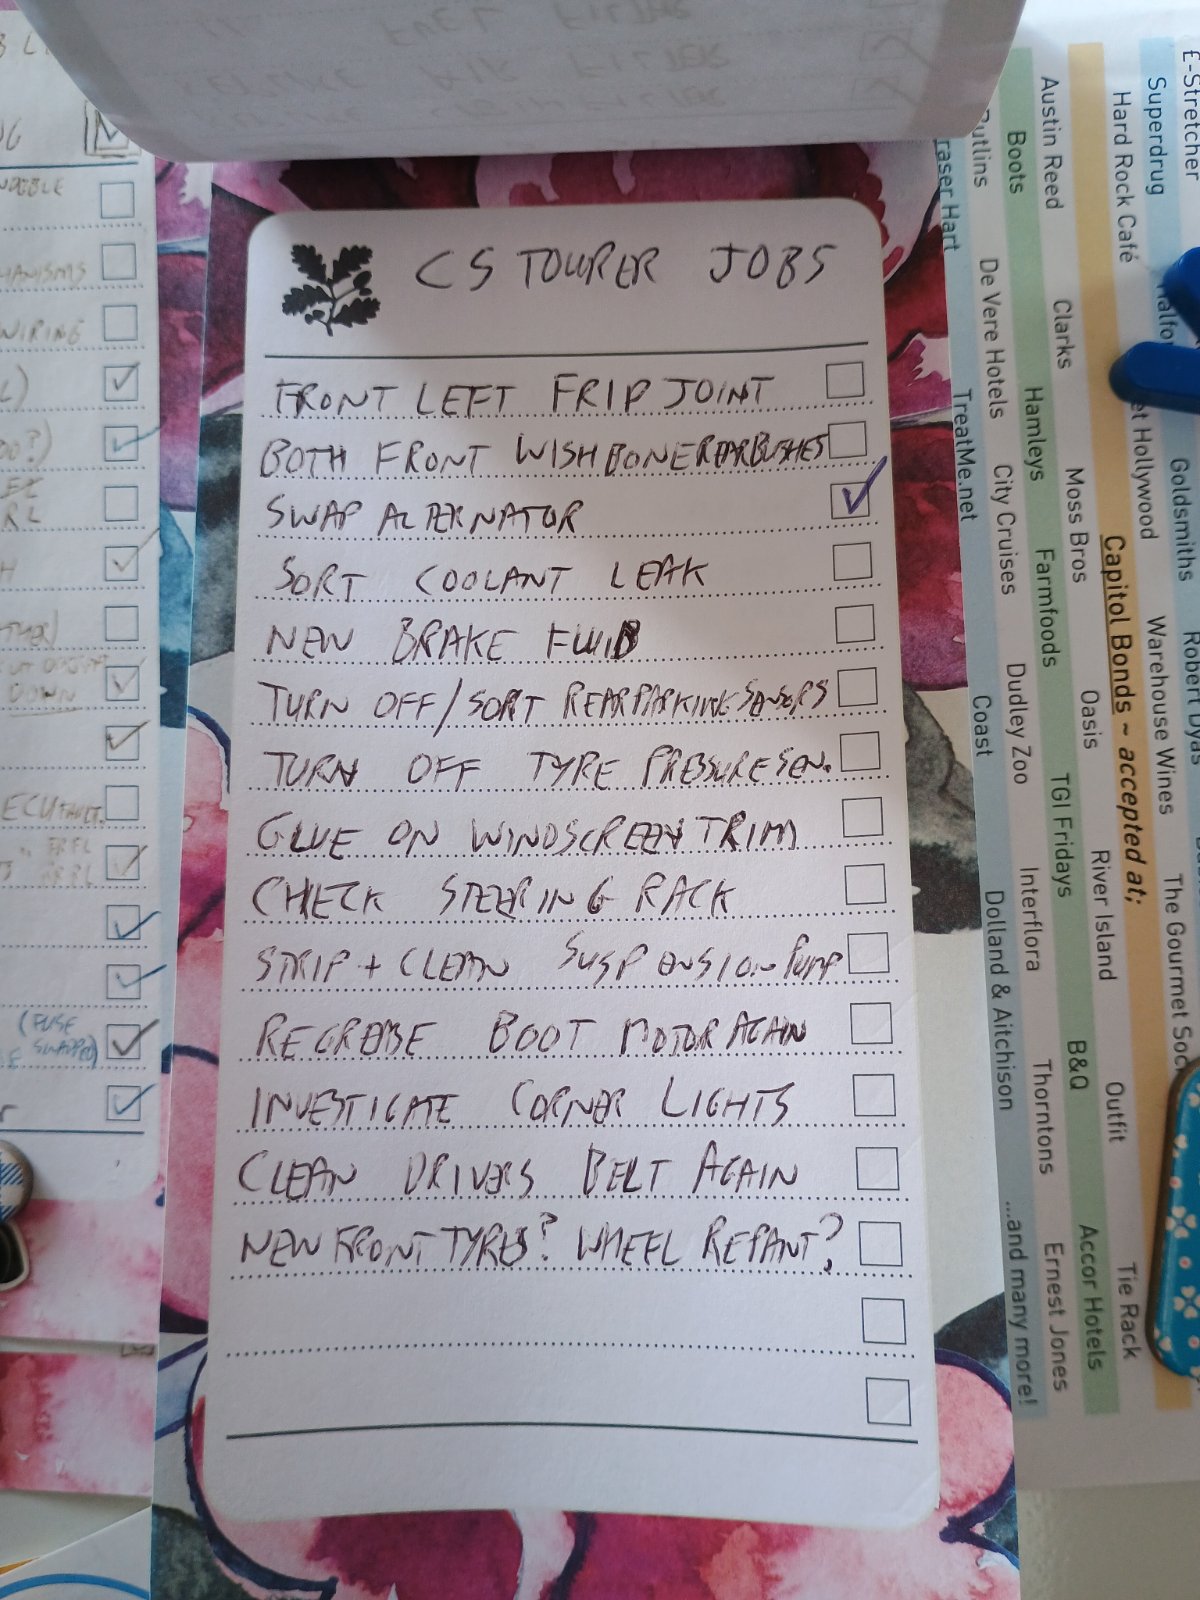 C5 TOURER JOBS
FRONT LEFT FRIP JOINT
BOTH FRONT WISHBONE REAR BUSHES
SWAP ALTERNATOR
SORT COOLANT LEAK
NEW BRAKE FLUID
TURN OFF/SORT REAR PARKING SENSORS
TURN OFF TYRE PRESSURE SEN.
GLUE ON WINDSCREEN TRIM
CHECK STEERING RACK
STRIP + CLEAN SUSPENSION PUMP
REGREASE BOOT MOTOR AGAIN
INVESTIGATE CORNER LIGHTS
CLEAN DRIVERS BELT AGAIN
NEW FRONT TYRES? WHEEL REPAINT?
FUEL FILTER
AIR FILTER
WIRING
DOWN
ECU FAULT.
(FUSE
SWAPPED)
Capitol Bonds ~ accepted at;
E-Stretcher
Superdrug
Goldsmiths
Robert Dyas
Hard Rock Café
Hollywood
Warehouse Wines
The Gourmet Soc
Austin Reed
Clarks
Moss Bros
Oasis
River Island
Outfit
Tie Rack
Boots
Hamleys
Farmfoods
TGI Fridays
B&Q
Accor Hotels
Butlins
De Vere Hotels
City Cruises
Dudley Zoo
Interflora
Thorntons
Ernest Jones
Fraser Hart
TreatMe.net
Coast
Dolland & Aitchison
...and many more!